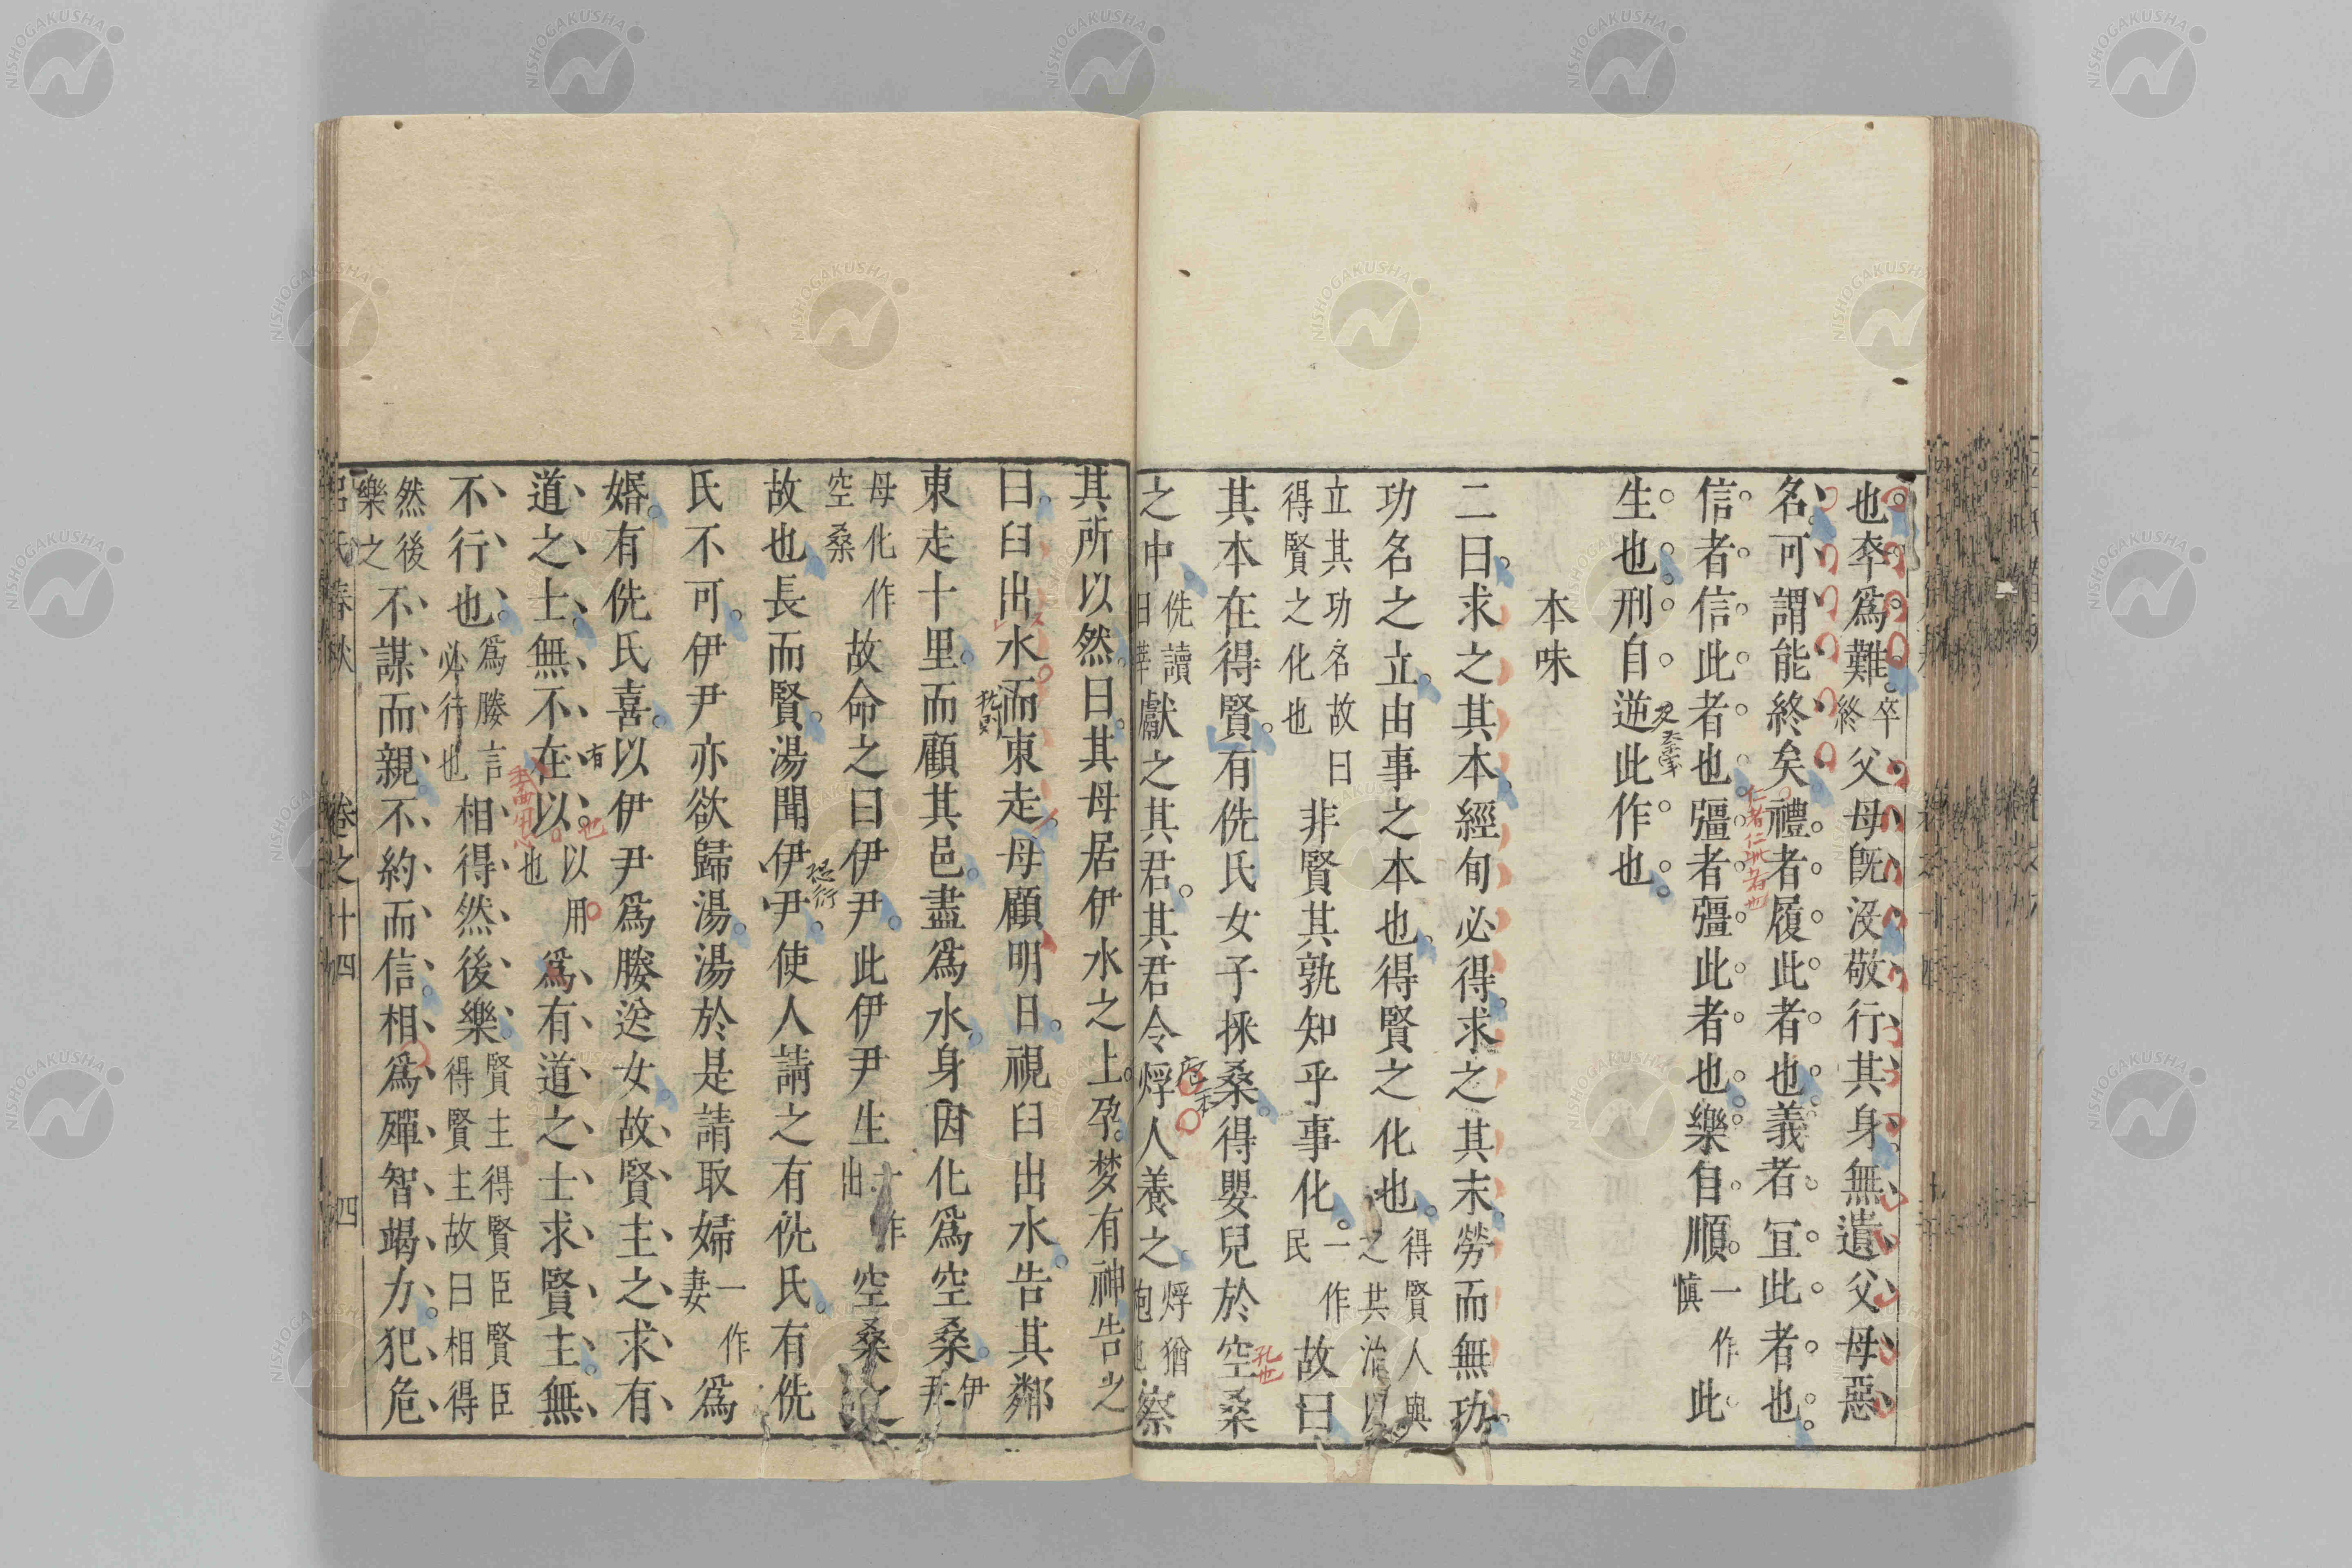 也卒爲難卒終父母旣沒敬行其身無遺父母惡
名可謂能終矣禮者履此者也義者宜此者也
仁者仁此者也
信者信此者也彊者彊此者也樂自順一作慎此
生也刑自逆此作也
本味
二曰求之其本經旬必得求之其末勞而無功
功名之立由事之本也得賢之化也得賢人與之共治以
立其功名故曰得賢之化也非賢其孰知乎事化一作民故曰
其本在得賢有侁氏女子採桑得嬰兒於空桑
之中侁讀曰莘獻之其君其君令烰人養之烰猶庖也察
其所以然曰其母居伊水之上孕夢有神告之
曰臼出水而東走母顧明日視臼出水告其鄰
東走十里而顧其邑盡爲水身因化爲空桑伊尹
母化作空桑故命之曰伊尹此伊尹生一作出空桑之
故也長而賢湯聞伊尹使人請之有侁氏有侁
氏不可伊尹亦欲歸湯湯於是請取婦一作妻爲
婚有侁氏喜以伊尹爲媵送女故賢主之求有
道之士無不在以以用也爲有道之士求賢主無
不行也爲媵言必行也相得然後樂賢主得賢臣賢臣得賢主故曰相得
然後樂之不謀而親不約而信相爲殫智竭力犯危
呂氏春秋 卷之十四 四
NISHOGAKUSHA